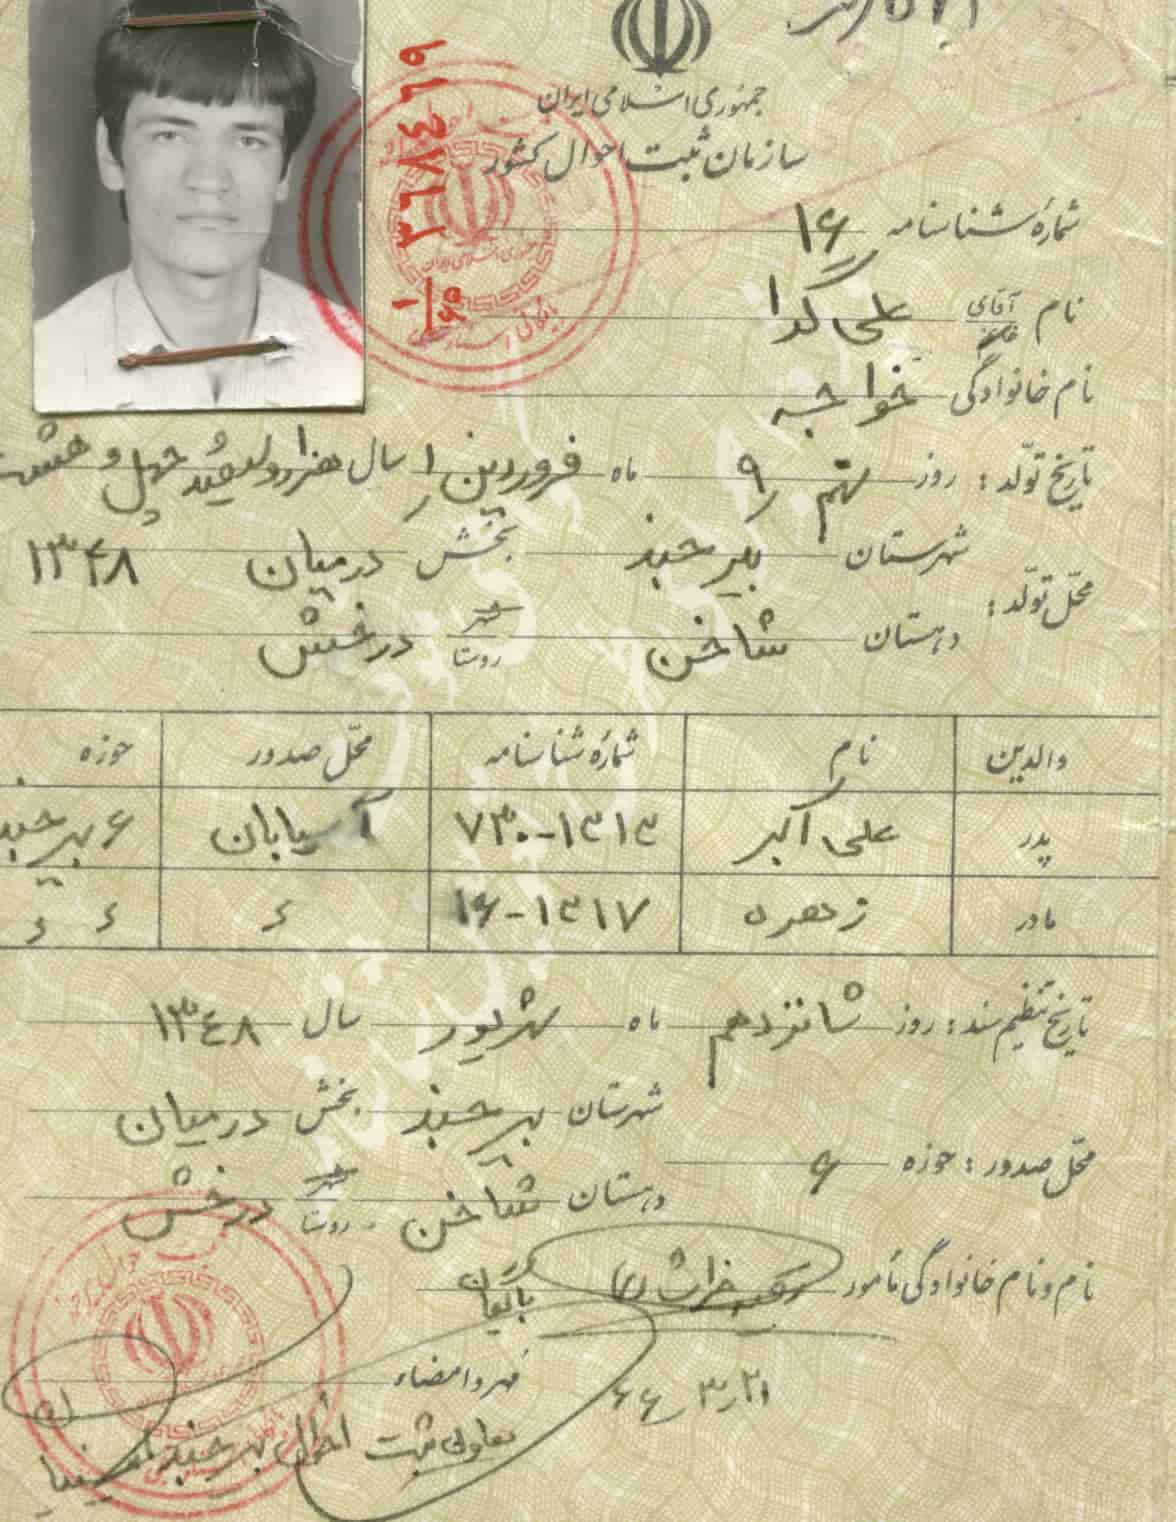 جمهوری اسلامی ایران
سازمان ثبت احوال کشور
۳۶۸۴۶۹
شماره شناسنامه ۱۶
نام آقای علی گدا
نام خانوادگی خواجه
تاریخ تولّد: روز نهم ۹ ماه فروردین ۱ سال هزار و سیصد و چهل و هشت
۱۳۴۸
محّل تولّد: شهرستان بیرجند بخش درمیان
دهستان شاخن شهر روستا درخش
والدین نام شمارهٔ شناسنامه محّل صدور حوزه
پدر علی اکبر ۱۳۱۳-۷۳۰ آسیابان ۶ بیرجند
مادر زهره ۱۳۱۷-۱۶ ء ء ء
تاریخ تنظیم سند: روز شانزدهم ماه شهریور سال ۱۳۴۸
محّل صدور: حوزه ۶ شهرستان بیرجند بخش درمیان
دهستان شاخن شهر روستا درخش
نام و نام خانوادگی مأمور
مهر و امضاء
۶۶/۳/۲۱
معاون ثبت احوال بیرجند